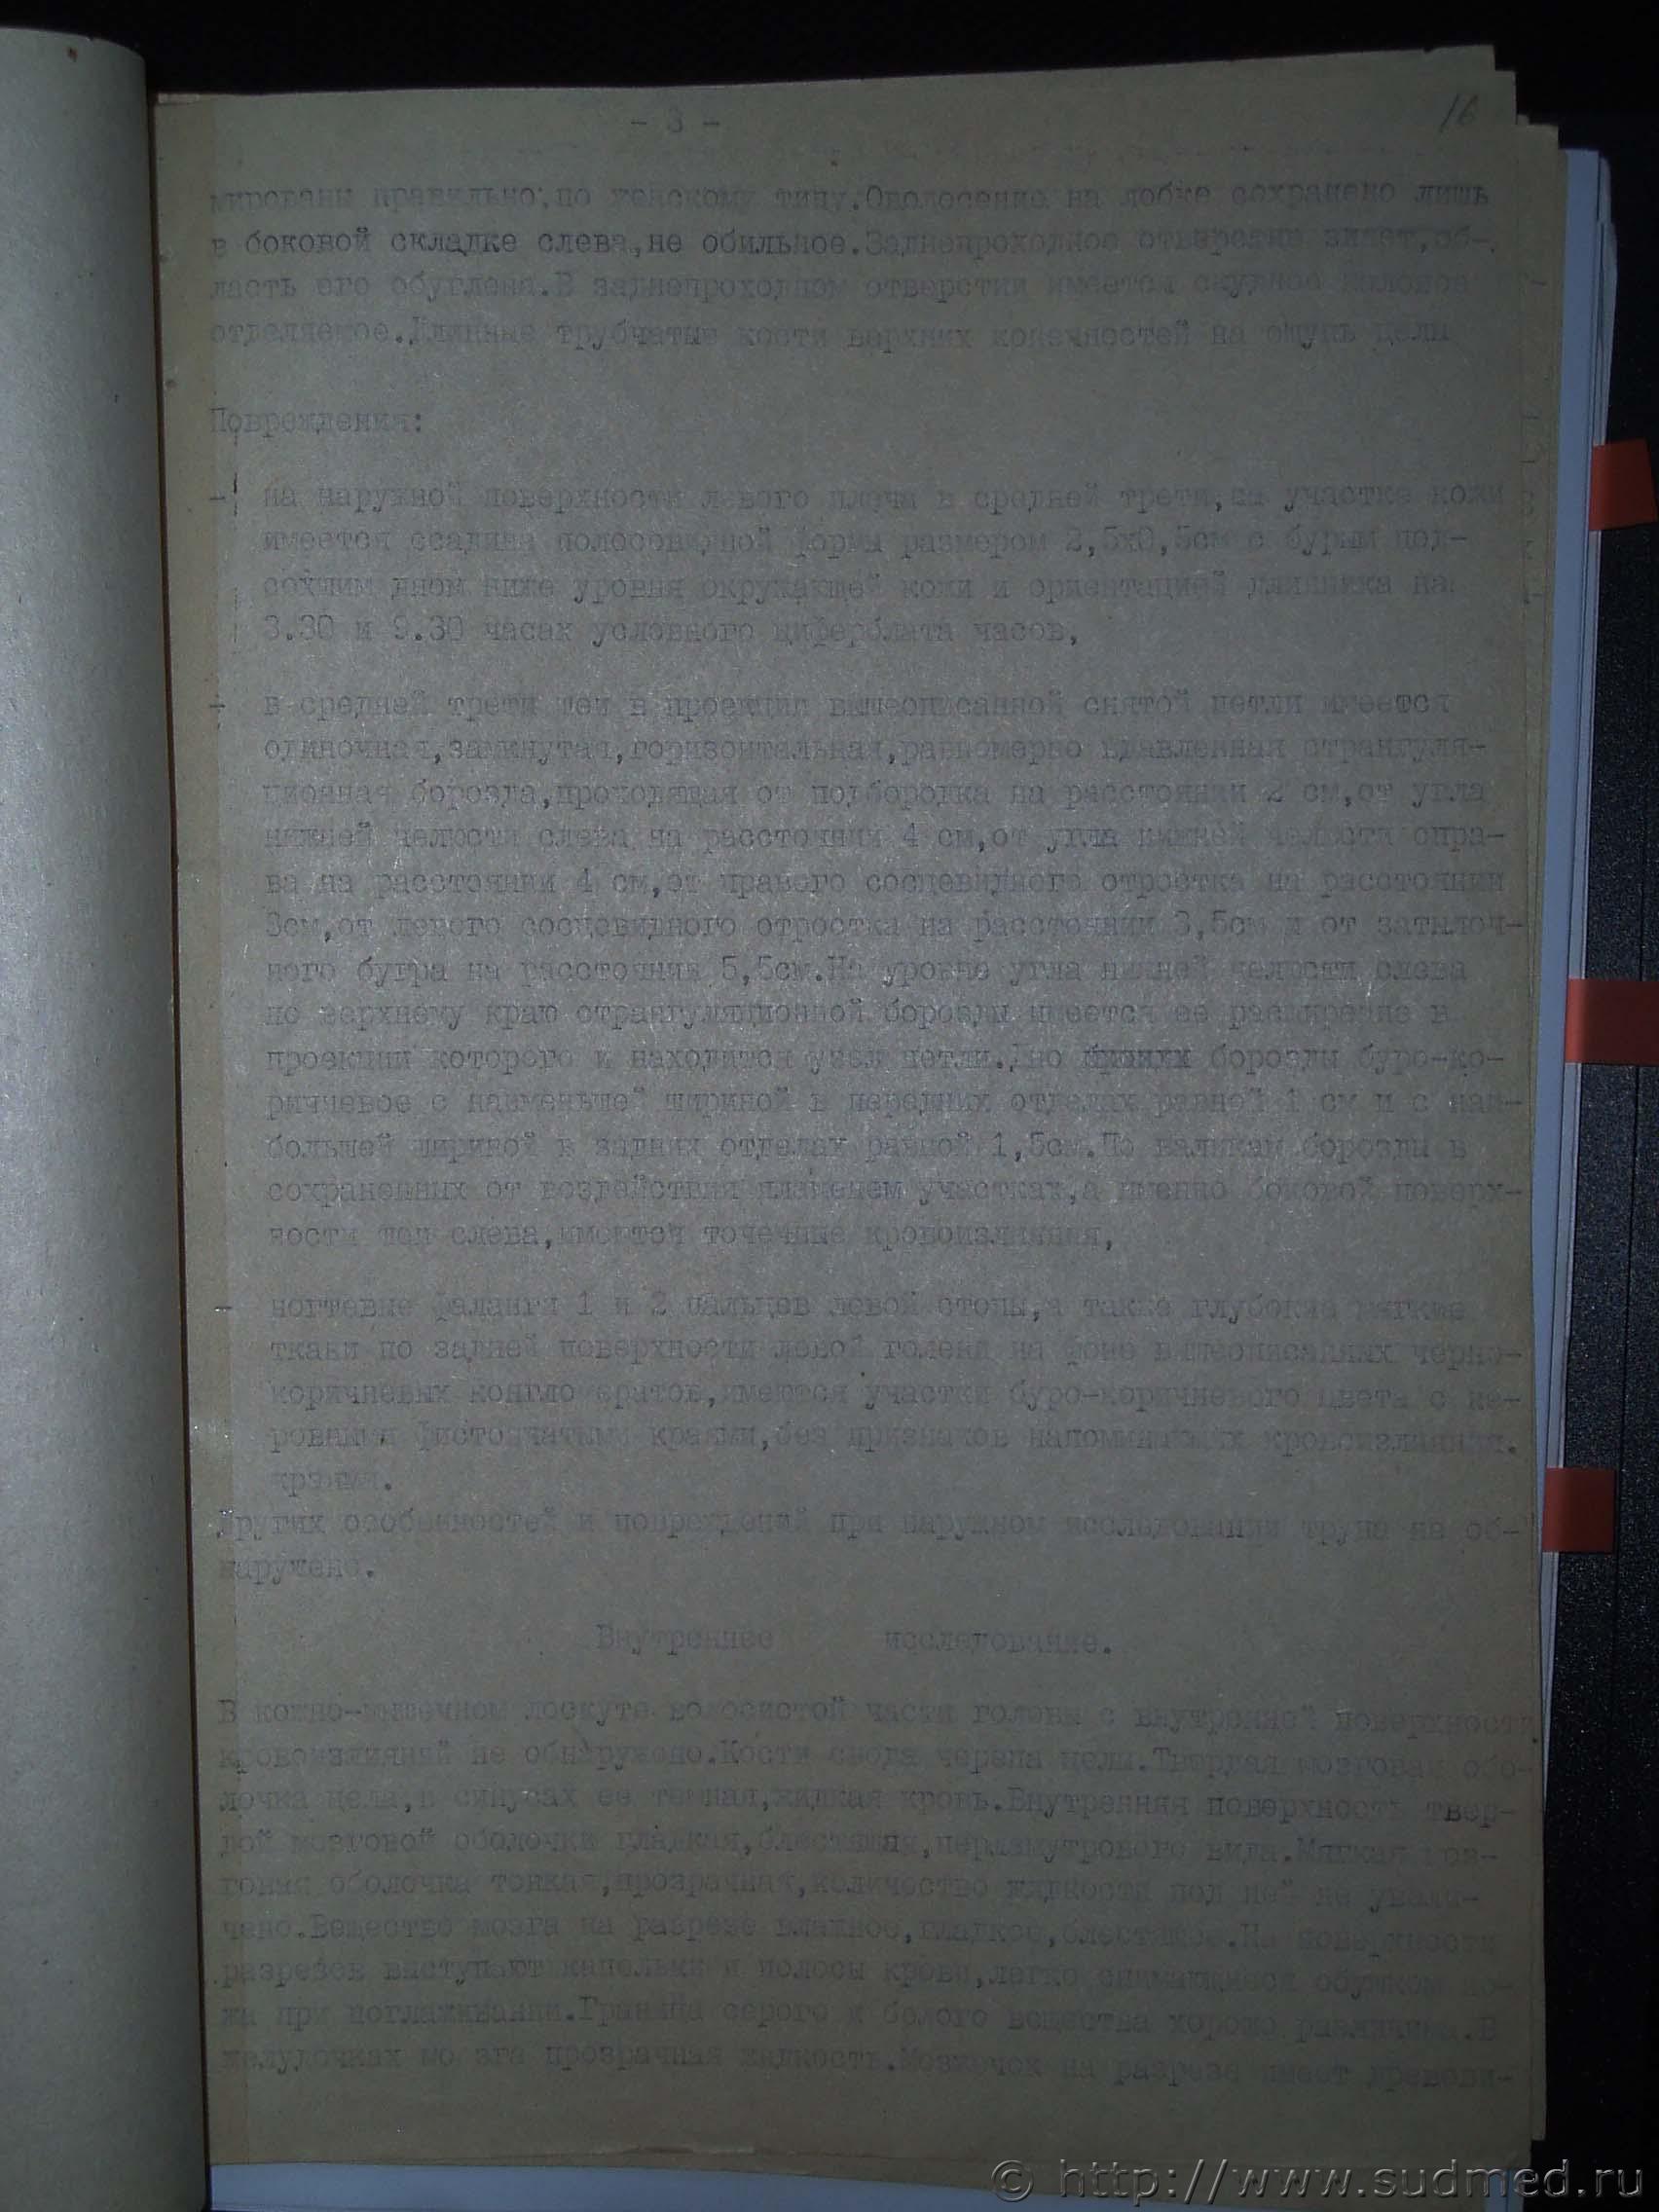 - 3 -
16
мированы правильно.по женскому типу.Оволосение на лобке сохранено лишь
в боковой складке слева,не обильное.Заднепроходное отверстие зияет,об-
ласть его обуглена.В заднепроходном отверстии имеется скудное каловое
отделяемое.Длинные трубчатые кости верхних конечностей на ощупь целы
Повреждения:
- на наружной поверхности левого плеча в средней трети,на участке кожи
имеется ссадина полосовидной формы размером 2,5х0,5см с бурым под-
сохшим дном ниже уровня окружающей кожи и ориентацией длинника на
3.30 и 9.30 часах условного циферблата часов,
- в средней трети шеи в проекции вышеописанной снятой петли имеется
одиночная,замкнутая,горизонтальная,равномерно вдавленная странгуля-
ционная борозда,проходящая от подбородка на расстоянии 2 см,от угла
нижней челюсти слева на расстоянии 4 см,от угла нижней челюсти спра-
ва на расстоянии 4 см,от правого сосцевидного отростка на расстоянии
3см,от левого сосцевидного отростка на расстоянии 3,5см и от затылоч-
ного бугра на расстоянии 5,5см.На уровне угла нижней челюсти слева
по верхнему краю странгуляционной борозды имеется ее расширение в
проекции которого и находится узел петли.Дно борозды буро-ко-
ричневое с наименьшей шириной в передних отделах равной 1 см и с наи-
большей шириной в задних отделах равной 1,5см.По валикам борозды в
сохраненных от воздействия пламенем участках,а именно боковой поверх-
ности шеи слева,имеются точечные кровоизлияния,
- ногтевые фаланги 1 и 2 пальцев левой стопы,а также глубокие мягкие
ткани по задней поверхности левой голени на фоне вышеописанных черно-
коричневых конгломератов,имеются участки буро-коричневого цвета с не-
ровными фистончатыми краями,без признаков напоминающих кровоизлияния.
краями.
Других особенностей и повреждений при наружном исследовании трупа не об-
наружено.
Внутреннее исследование.
В кожно-мышечном лоскуте волосистой части головы с внутренней поверхности
кровоизлияний не обнаружено.Кости свода черепа целы.Твердая мозговая обо-
лочка цела,в синусах ее темная,жидкая кровь.Внутренняя поверхность твер-
дой мозговой оболочки гладкая,блестящая,перламутрового вида.Мягкая моз-
говая оболочка тонкая,прозрачная,количество жидкости под ней не увели-
чено.Вещество мозга на разрезе влажное,гладкое,блестящее.На поверхности
разрезов выступают капельки и полосы крови,легко снимающиеся обушком но-
жа при поглаживании.Граница серого и белого вещества хорошо различима.В
желудочках мо зга прозрачная жидкость.Мозжечок на разрезе имеет древови-
© http://www.sudmed.ru